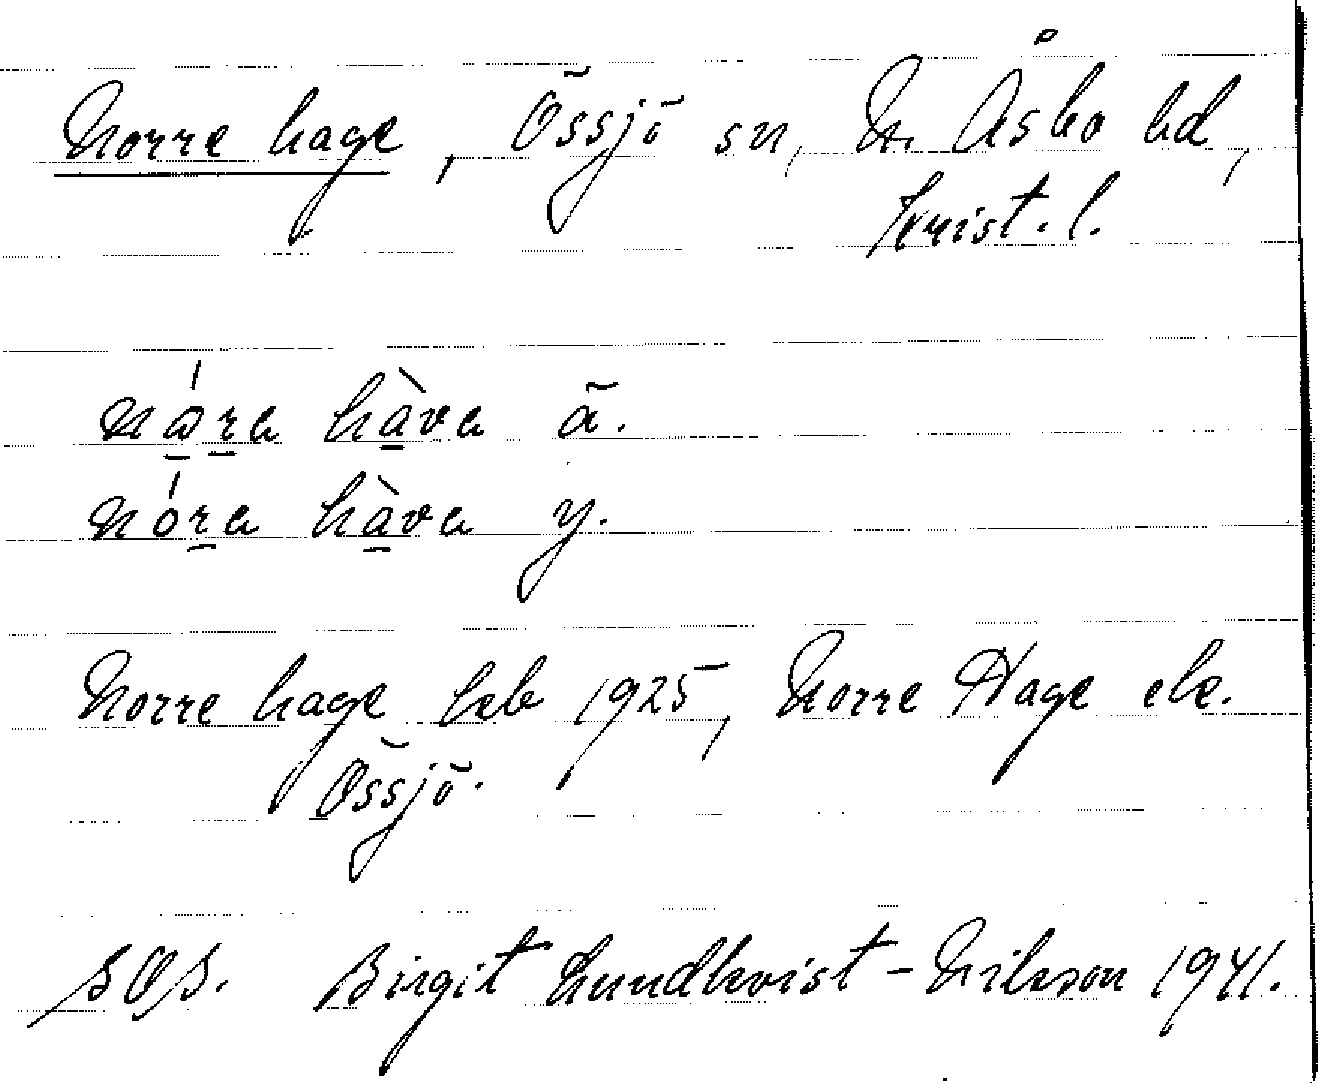 Norre hage, Össjö sn, N. Åsbo hd,
Krist. l.
nåra hàva ä.
nóra hàva y.
Norre hage kab 1925, Norre Hage ek.
Össjö.
SOS. Birgit Lundkvist-Nilsson 1941.